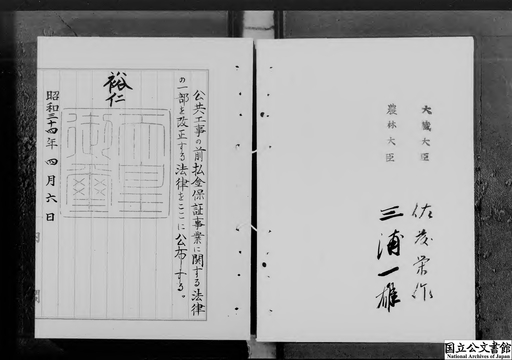 大蔵大臣 佐藤栄作
農林大臣 三浦一雄
公共工事の前払金保証事業に関する法律
の一部を改正する法律をここに公布する。
裕仁
天皇
御璽
昭和三十四年四月六日
国立公文書館
National Archives of Japan